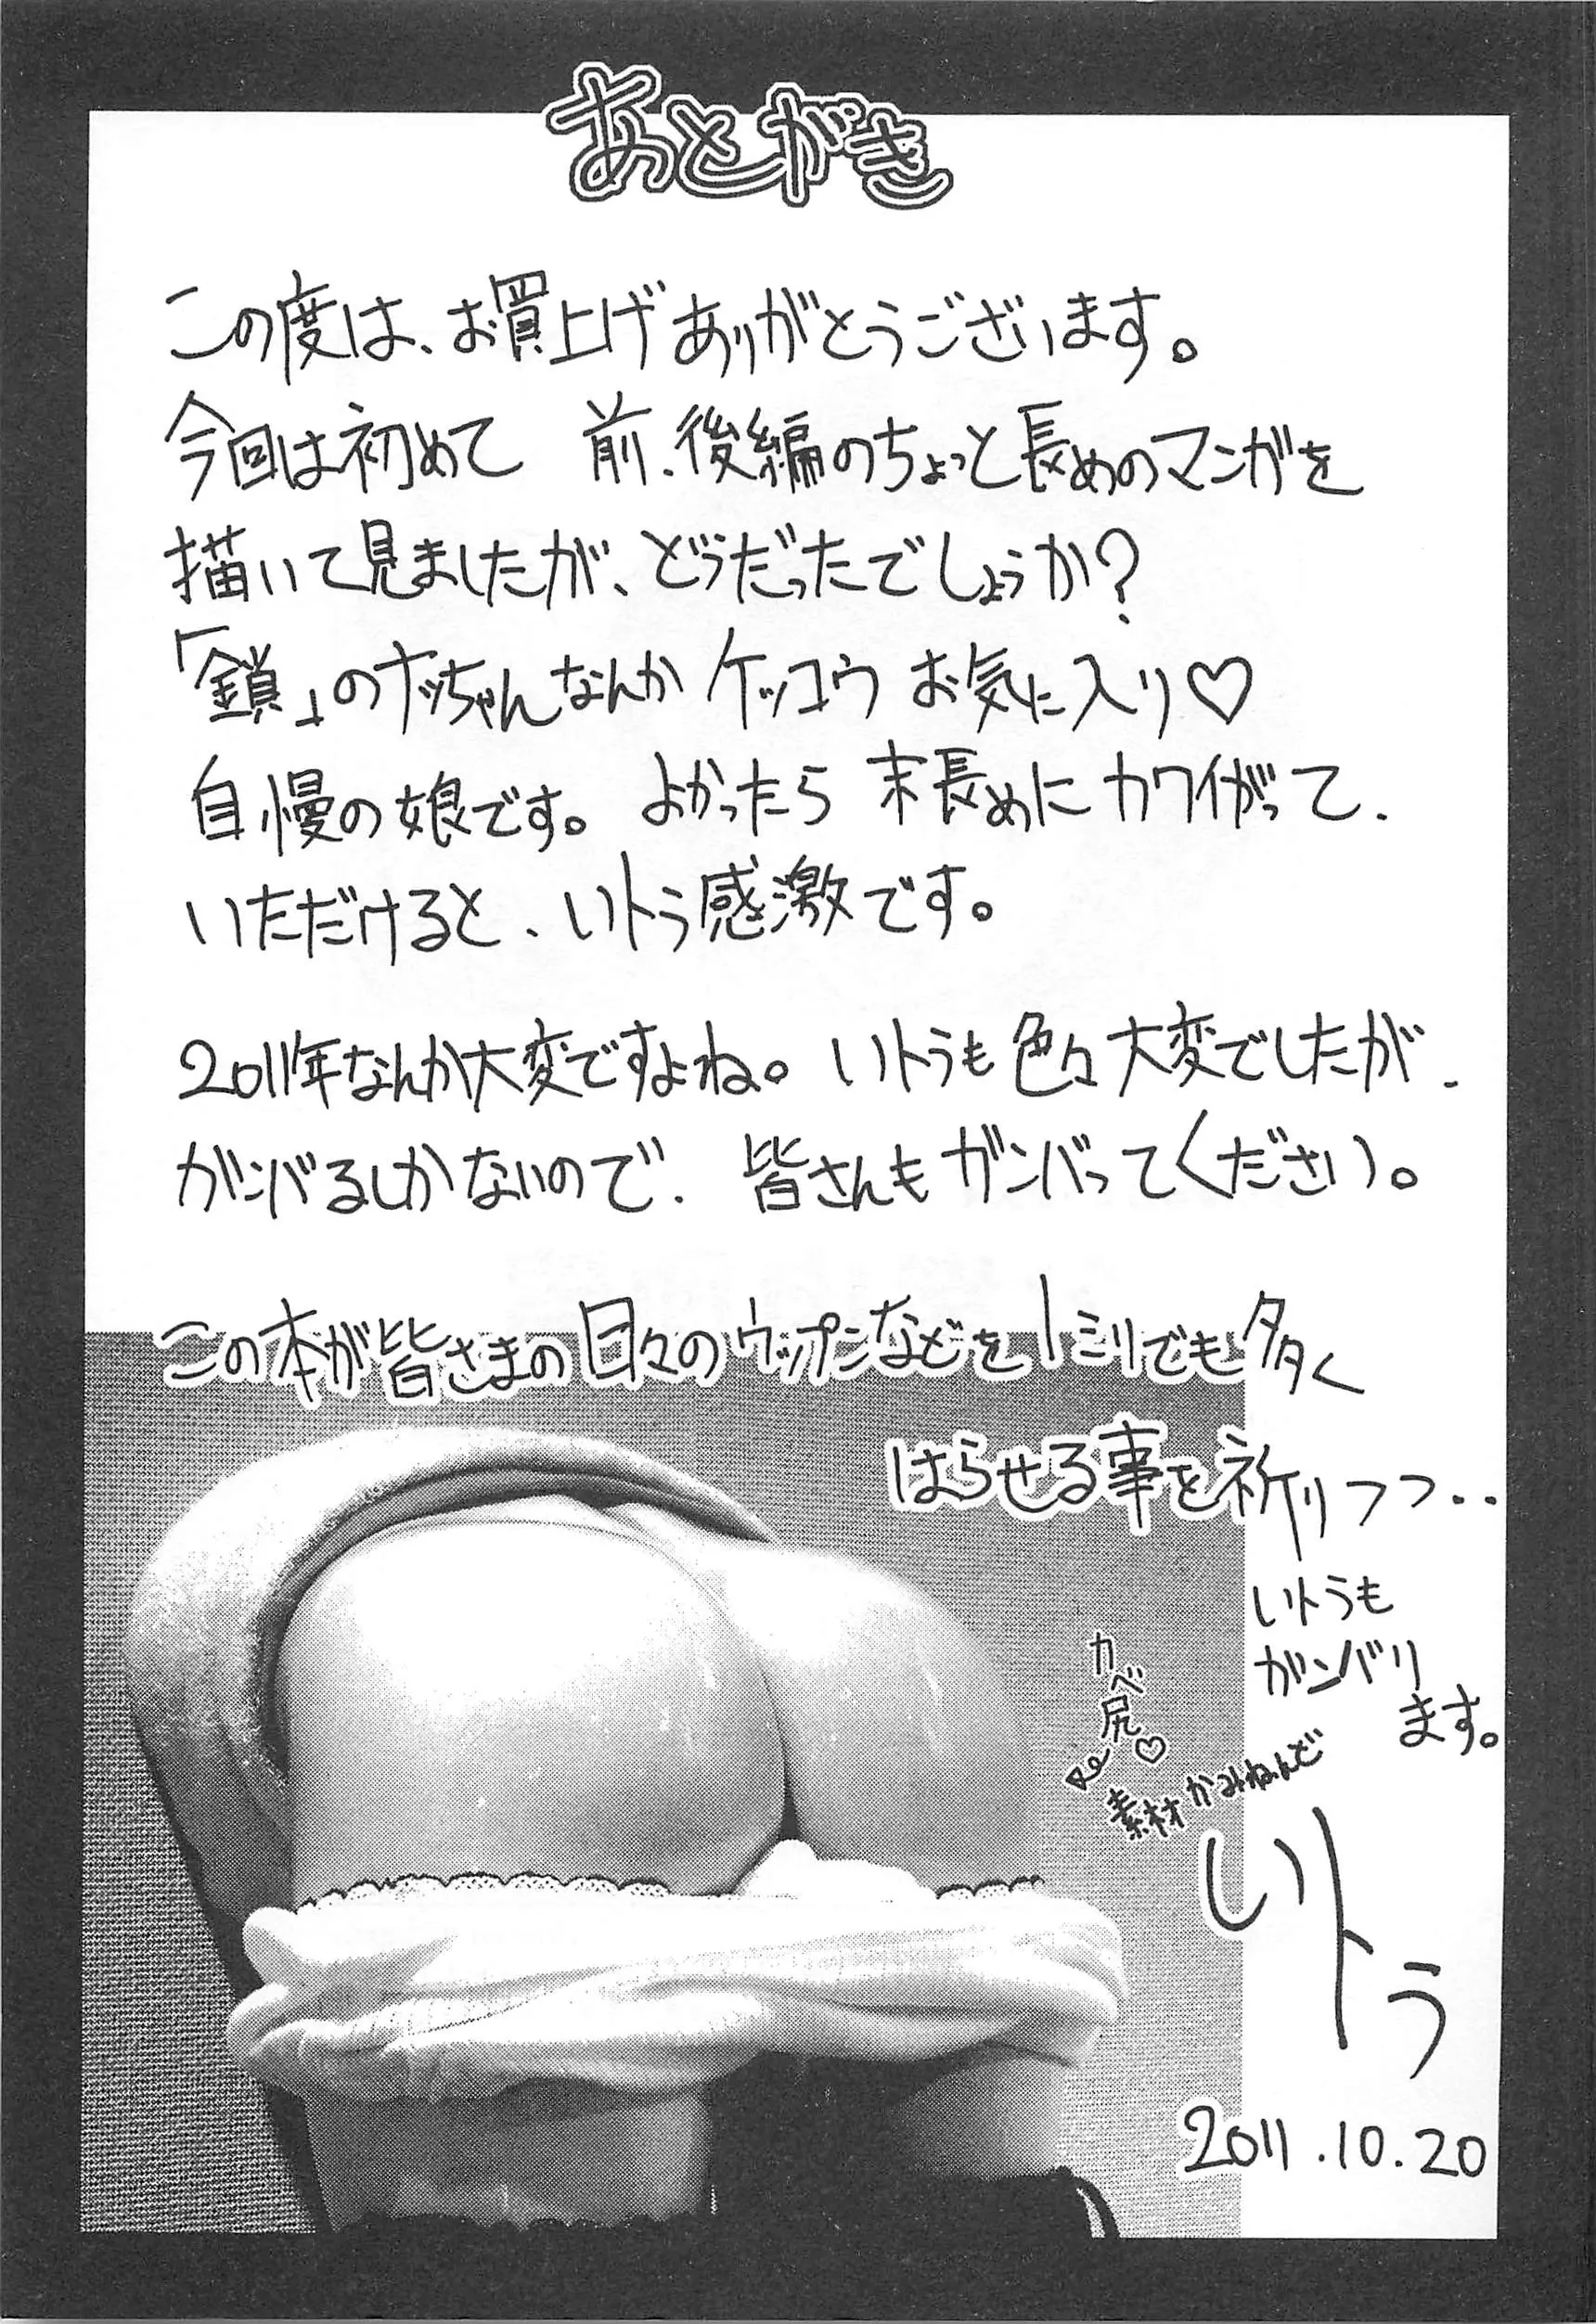 あとがき
この度は、お買上げありがとうございます。
今回は初めて 前、後編のちょっと長めのマンガを
描いて見ましたが、どうだったでしょうか?
「鎖」のナッちゃんなんかケッコウ お気に入り♡
自慢の娘です。よかったら 末長めにカワイがって、
いただけると、いトう感激です。
2011年なんか大変ですよね。いトうも色々大変でしたが、
ガンバるしかないので、皆さんもガンバってください。
この本が皆さまの日々のウップンなどを1ミリでも多く
はらせる事を祈りつつ‥
いトうも
ガンバリ
ます。
カベ尻♡
素材 かみねんど
いトう
2011.10.20